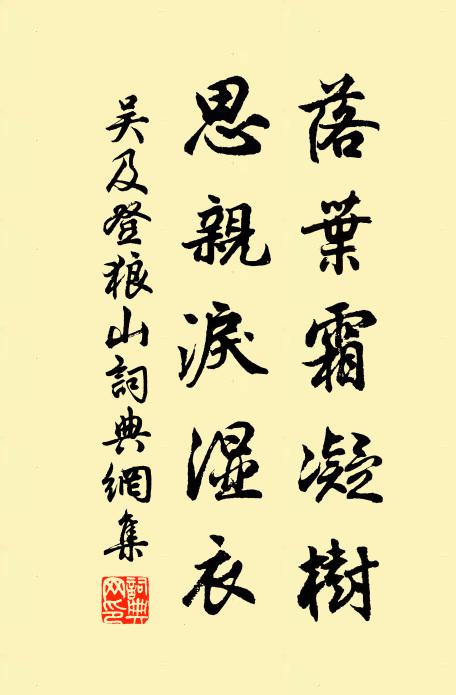 落葉霜凝樹
思親淚湿衣
吴及登狼山詞典網集
詞典网印